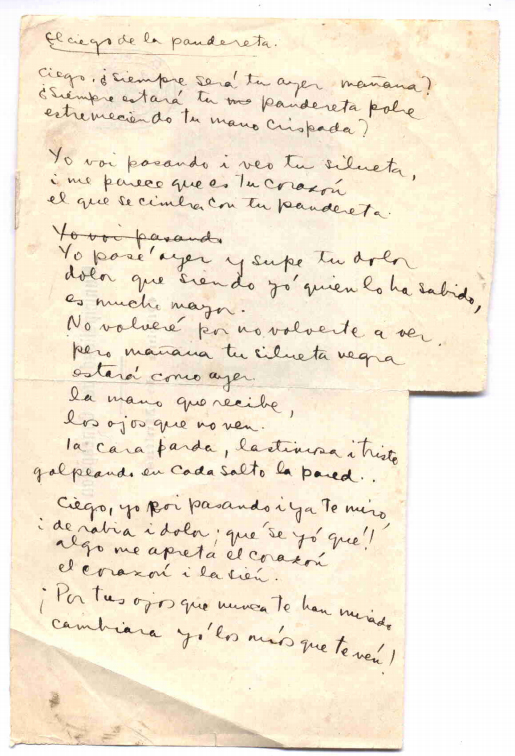 El ciego de la pandereta.
Ciego, ¿Siempre será tu ayer mañana?
¿Siempre estará tu pandereta pobre
estremeciendo tu mano crispada?
Yo voi pasando i veo tu silueta,
i me parece que es tu corazón
el que se cimbra con tu pandereta.
Yo voi pasando
Yo pasé ayer y supe tu dolor
dolor que siendo yó quien lo ha sabido,
es mucho mayor.
No volveré por no volverte a ver.
pero mañana tu silueta negra
estará como ayer.
la mano que recibe,
los ojos que no ven.
la cara parda, lastimosa i triste
golpeando en cada salto la pared..
Ciego, yo voi pasando i ya te miro,
i de rabia i dolor; qué se yó qué!!
algo me apreta el corazón
el corazón i la sién.
¡Por tus ojos que nunca te han mirado
cambiara yó los mios que te ven!